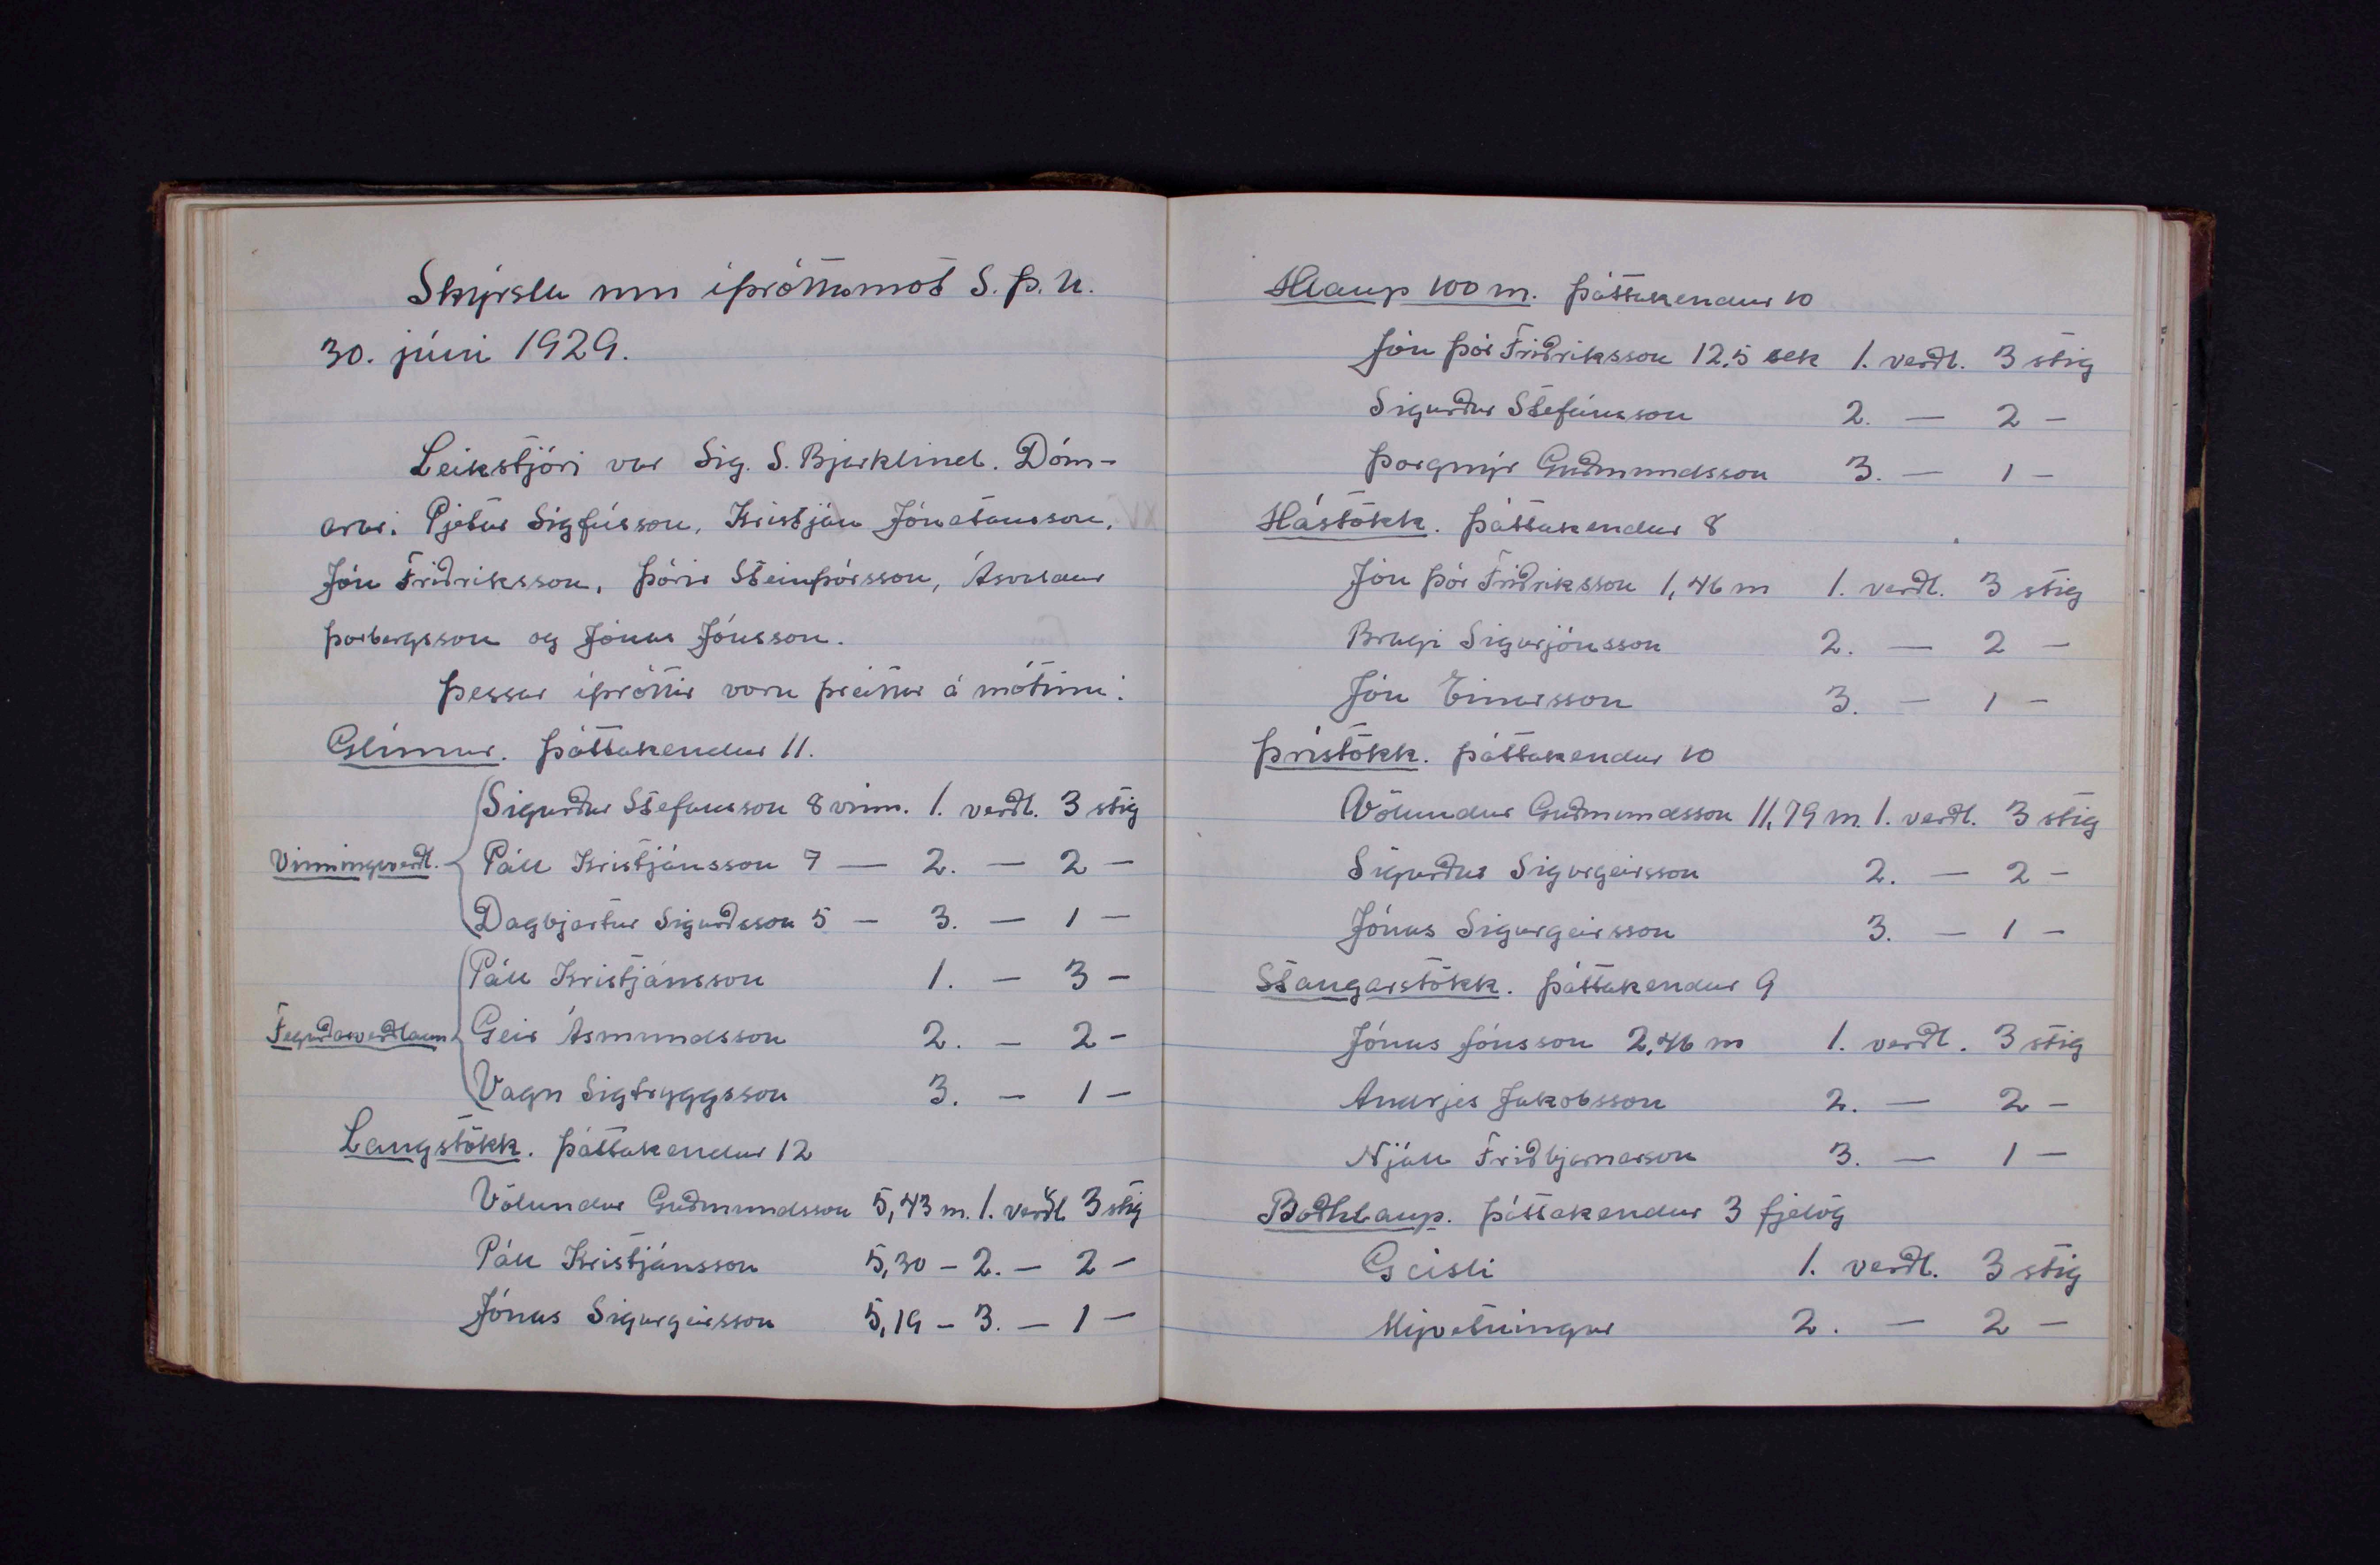 Skýrsla um íþróttamót S.Þ.U.
30. júní 1929.
Leikstjóri var Sig. S. Bjarklind. Dóm-
arar: Pjetur Sigfússon, Kristján Jónatansson,
Jón Friðriksson, Þórir Steinþórsson, Ásvaldur
Þorbergsson og Jónas Jónsson.
Þessar íþróttir voru þreittar á mótinu:
Glímur. Þátttakendur 11.
Sigurður Stefánsson 8 vinn. 1. verðl. 3 stig
Vinningverðl. Páll Kristjánsson 7 — 2. — 2 —
Dagbjartur Sigurðsson 5 — 3. — 1 —
Páll Kristjánsson 1. — 3 —
Fegurðarverðlaun Geir Ásmundsson 2. — 2 —
Vagn Sigtryggsson 3. — 1 —
Langstökk. Þátttakendur 12
Völundur Guðmundsson 5,43 m. 1. verðl. 3 stig
Páll Kristjánsson 5,30 — 2. — 2 —
Jónas Sigurgeirsson 5,19 — 3. — 1 —
Hlaup 100 m. Þátttakendur 10
Jón Þór Friðriksson 12,5 sek 1. verðl. 3 stig
Sigurður Stefánsson 2. — 2 —
Þorgnýr Guðmundsson 3. — 1 —
Hástökk. Þátttakendur 8
Jón Þór Friðriksson 1,46 m 1. verðl. 3 stig
Bragi Sigurjónsson 2. — 2 —
Jón Einarsson 3. — 1 —
Þrístökk. Þátttakendur 10
Völundur Guðmundsson 11,79 m. 1. verðl. 3 stig
Sigurður Sigurgeirsson 2. — 2 —
Jónas Sigurgeirsson 3. — 1 —
Stangarstökk. Þátttakendur 9
Jónas Jónsson 2,46 m 1. verðl. 3 stig
Andrjes Jakobsson 2. — 2 —
Njáll Friðbjarnarson 3. — 1 —
Boðhlaup. Þátttakendur 3 fjelög
Geisli 1. verðl. 3 stig
Mývetningur 2. — 2 —